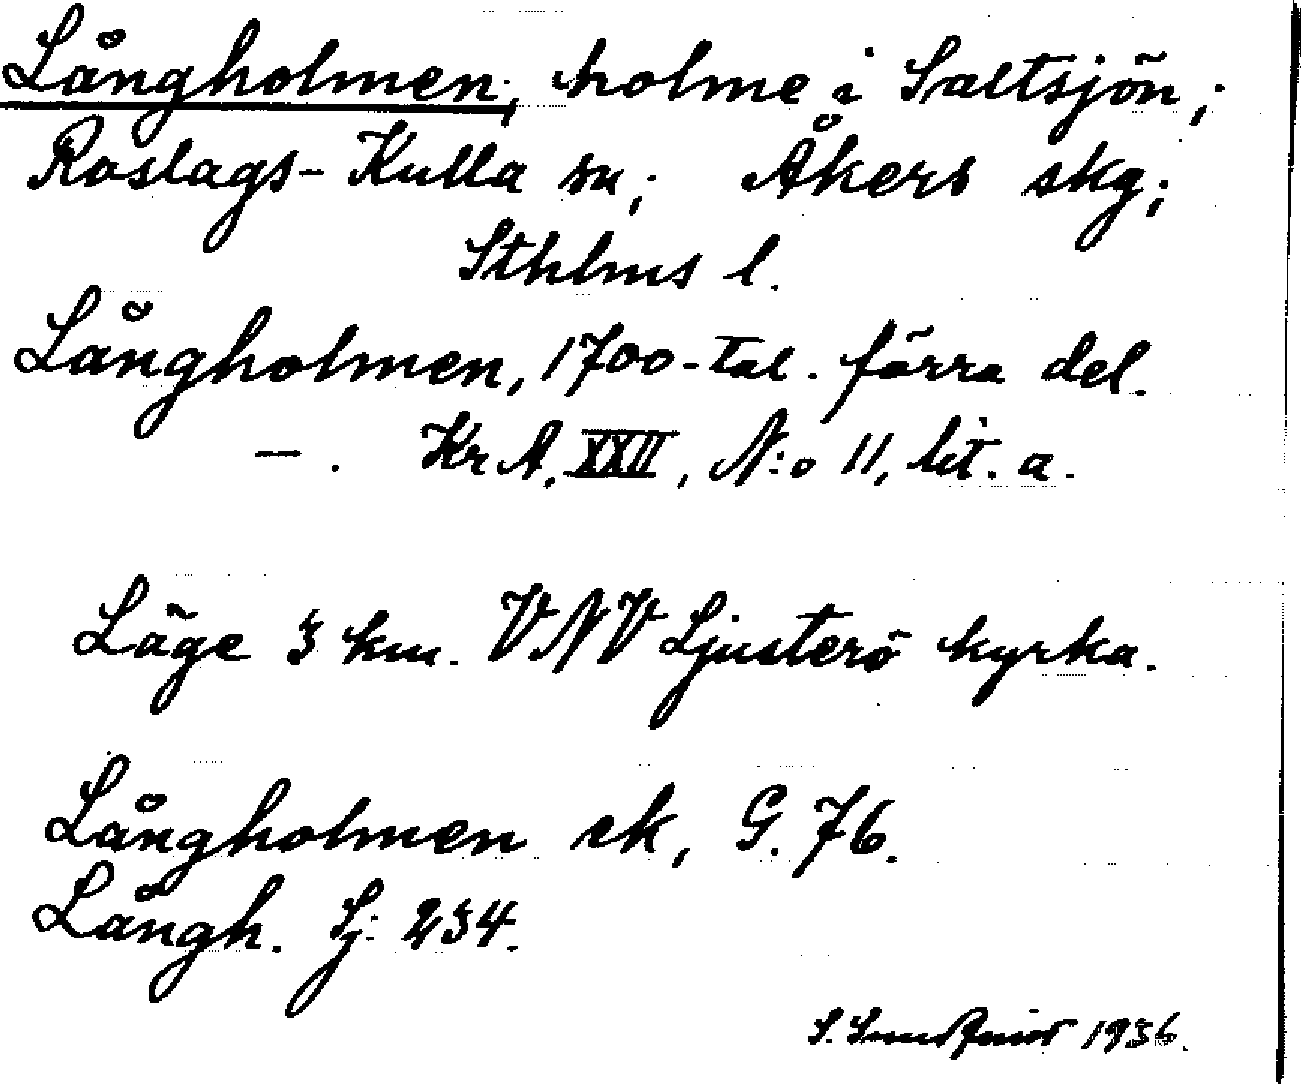 Långholmen, holme i Saltsjön;
Roslags-Kulla sn; Åkers skg;
Sthlms l.
Långholmen, 1700-tal. förra del.
— . Kr A, XXII, N:o 11, lit. a.
Läge 3 km. VNV Ljusterö kyrka.
Långholmen ek, G. 76.
Långh. Sj: 234.
S. 1936.